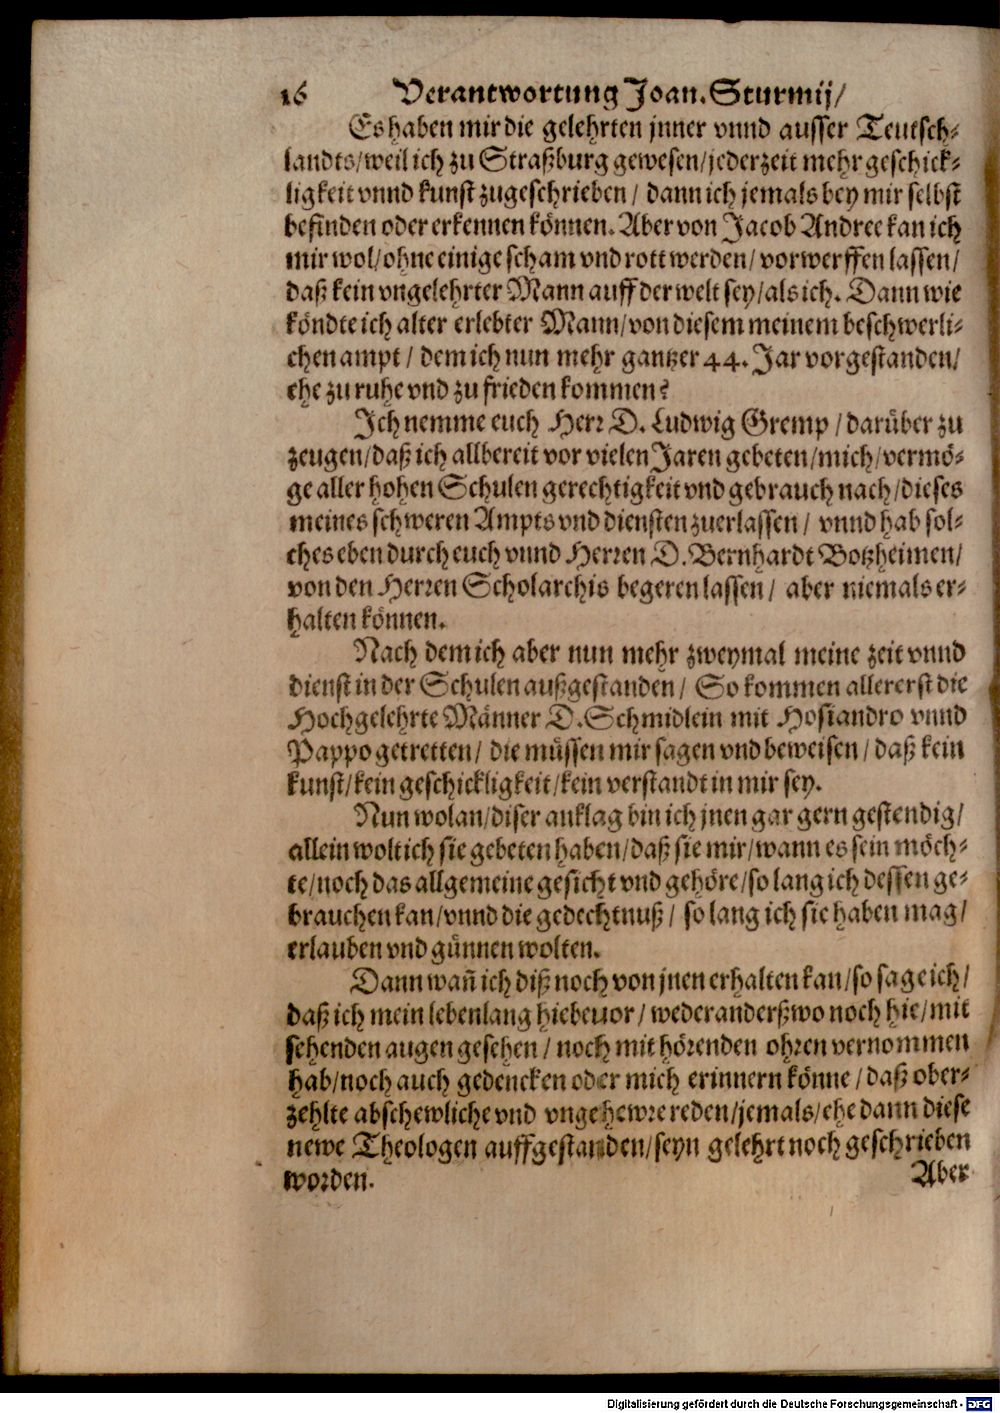 16 Verantwortung Joan. Sturmij/
Es haben mir die gelehrten jnner vnnd ausser Teutsch-
landts/weil ich zu Straßburg gewesen/jederzeit mehr geschick-
ligkeit vnnd kunst zugeschrieben/ dann ich jemals bey mir selbst
befinden oder erkennen können. Aber von Jacob Andree kan ich
mir wol/ohne einige scham vnd rott werden/ vorwerffen lassen/
daß kein vngelehrter Mann auff der welt sey/als ich. Dann wie
köndte ich alter erlebter Mann/von diesem meinem beschwerli-
chen ampt/ dem ich nun mehr gantzer 44. Jar vorgestanden/
ehe zu ruhe vnd zu frieden kommen?
Ich nemme euch Herr D. Ludwig Gremp/darüber zu
zeugen/daß ich allbereit vor vielen Jaren gebeten/mich/vermö-
ge aller hohen Schulen gerechtigkeit vnd gebrauch nach/dieses
meines schweren Ampts vnd diensten zuerlassen/ vnnd hab sol-
ches eben durch euch vnnd Herren D. Bernhardt Botzheimen/
von den Herren Scholarchis begeren lassen/ aber niemals er-
halten können.
Nach dem ich aber nun mehr zweymal meine zeit vnnd
dienst in der Schulen außgestanden/ So kommen allererst die
Hochgelehrte Männer D. Schmidlein mit Hosiandro vnnd
Pappo getretten/ die müssen mir sagen vnd beweisen/ daß kein
kunst/kein geschickligkeit/kein verstandt in mir sey.
Nun wolan/diser anklag bin ich jnen gar gern gestendig/
allein wolt ich sie gebeten haben/daß sie mir/wann es sein möch-
te/noch das allgemeine gesicht vnd gehöre/so lang ich dessen ge-
brauchen kan/vnnd die gedechtnuß/ so lang ich sie haben mag/
erlauben vnd günnen wolten.
Dann wañ ich diß noch von jnen erhalten kan/so sage ich/
daß ich mein lebenlang hiebeuor/ weder anderßwo noch hie/mit
sehenden augen gesehen/ noch mit hörenden ohren vernommen
hab/noch auch gedencken oder mich erinnern könne/daß ober-
zehlte abschewliche vnd vngehewre reden/jemals/ehe dann diese
newe Theologen auffgestanden/seyn gelehrt noch geschrieben
worden.
Aber
Digitalisierung gefördert durch die Deutsche Forschungsgemeinschaft - DFG